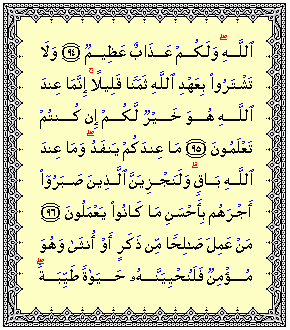 ٱللَّهِ ۖ وَلَكُمْ عَذَابٌ عَظِيمٌ ﴿٩٤﴾ وَلَا
تَشْتَرُوا۟ بِعَهْدِ ٱللَّهِ ثَمَنًا قَلِيلًا ۚ إِنَّمَا عِندَ
ٱللَّهِ هُوَ خَيْرٌ لَّكُمْ إِن كُنتُمْ
تَعْلَمُونَ ﴿٩٥﴾ مَا عِندَكُمْ يَنفَدُ ۖ وَمَا عِندَ
ٱللَّهِ بَاقٍ ۗ وَلَنَجْزِيَنَّ ٱلَّذِينَ صَبَرُوٓا۟
أَجْرَهُم بِأَحْسَنِ مَا كَانُوا۟ يَعْمَلُونَ ﴿٩٦﴾
مَنْ عَمِلَ صَٰلِحًا مِّن ذَكَرٍ أَوْ أُنثَىٰ وَهُوَ
مُؤْمِنٌ فَلَنُحْيِيَنَّهُۥ حَيَوٰةً طَيِّبَةً ۖ